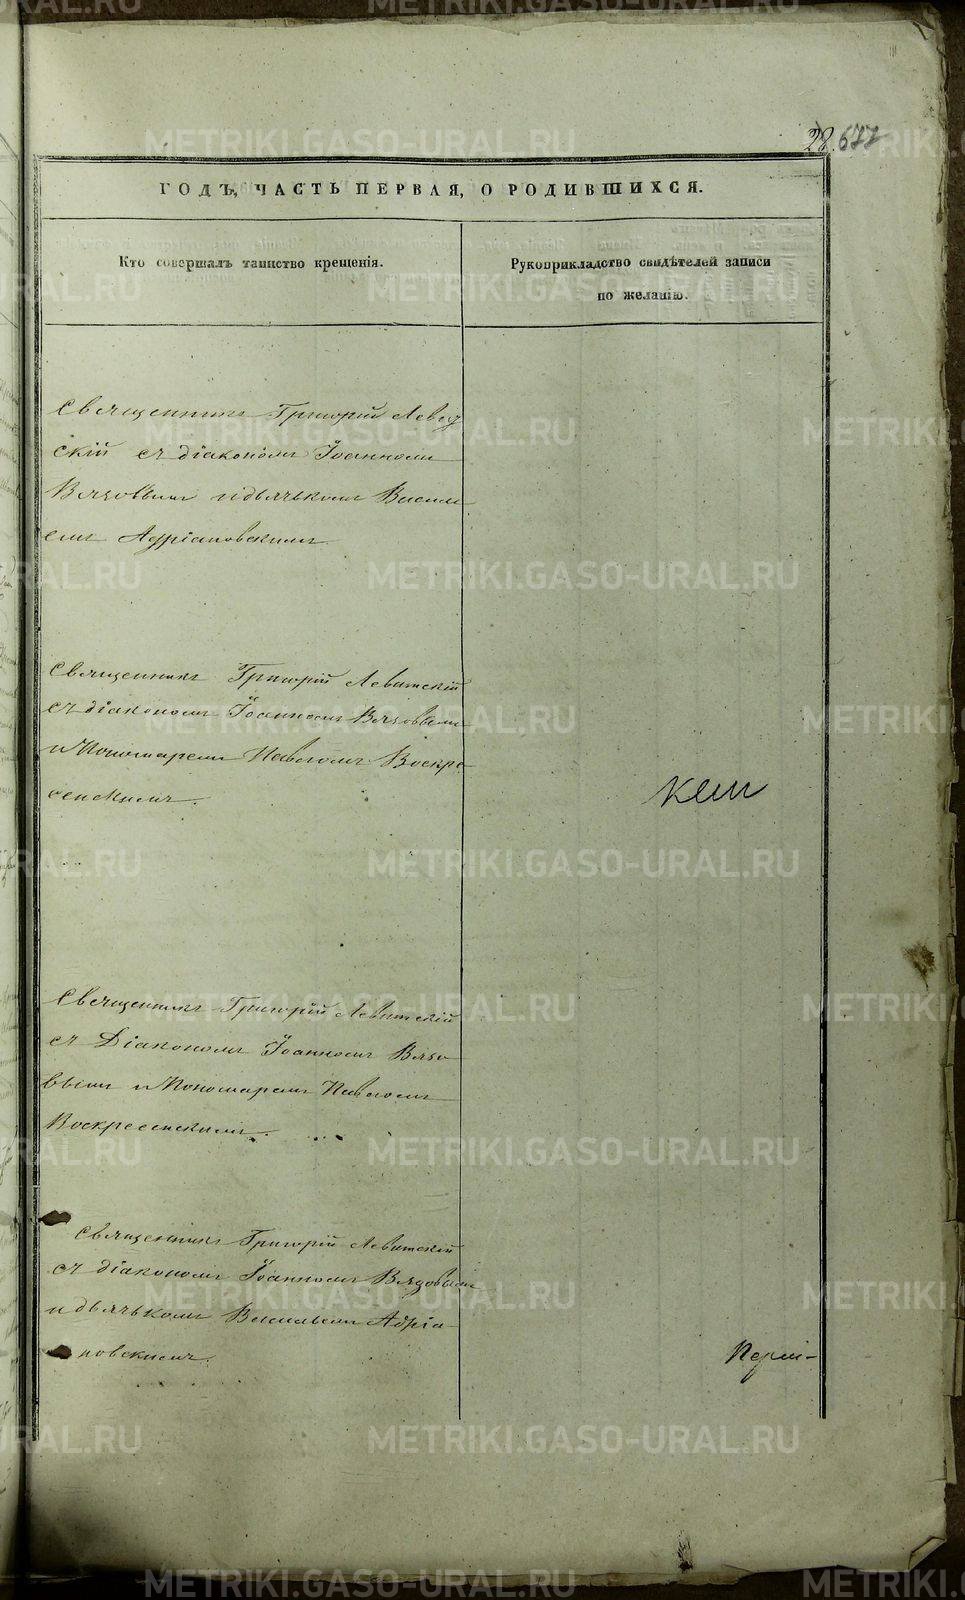 28. 677
ГОДЪ, ЧАСТЬ ПЕРВАЯ, О РОДИВШИХСЯ.
Кто совершалъ таинство крещенія.
Рукоприкладство свидѣтелей записи
по желанію.
Священникъ Григорій Левит
скій съ діакономъ Іоанномъ
Вязовымъ и дьячькомъ Василі
емъ Адріановскимъ.
Священникъ Григорій Левитскій
съ діакономъ Іоанномъ Вязовымъ
и Пономаремъ Павломъ Воскре
сенскимъ.
Священникъ Григорій Левитскій
съ Діакономъ Іоанномъ Вязо
вымъ и Пономаремъ Павломъ
Воскресенскимъ.
Священникъ Григорій Левитскій
съ діакономъ Іоанномъ Вязовымъ
и дьячькомъ Васильемъ Адріа
новскимъ.
Перм-
METRIKI.GASO-URAL.RU